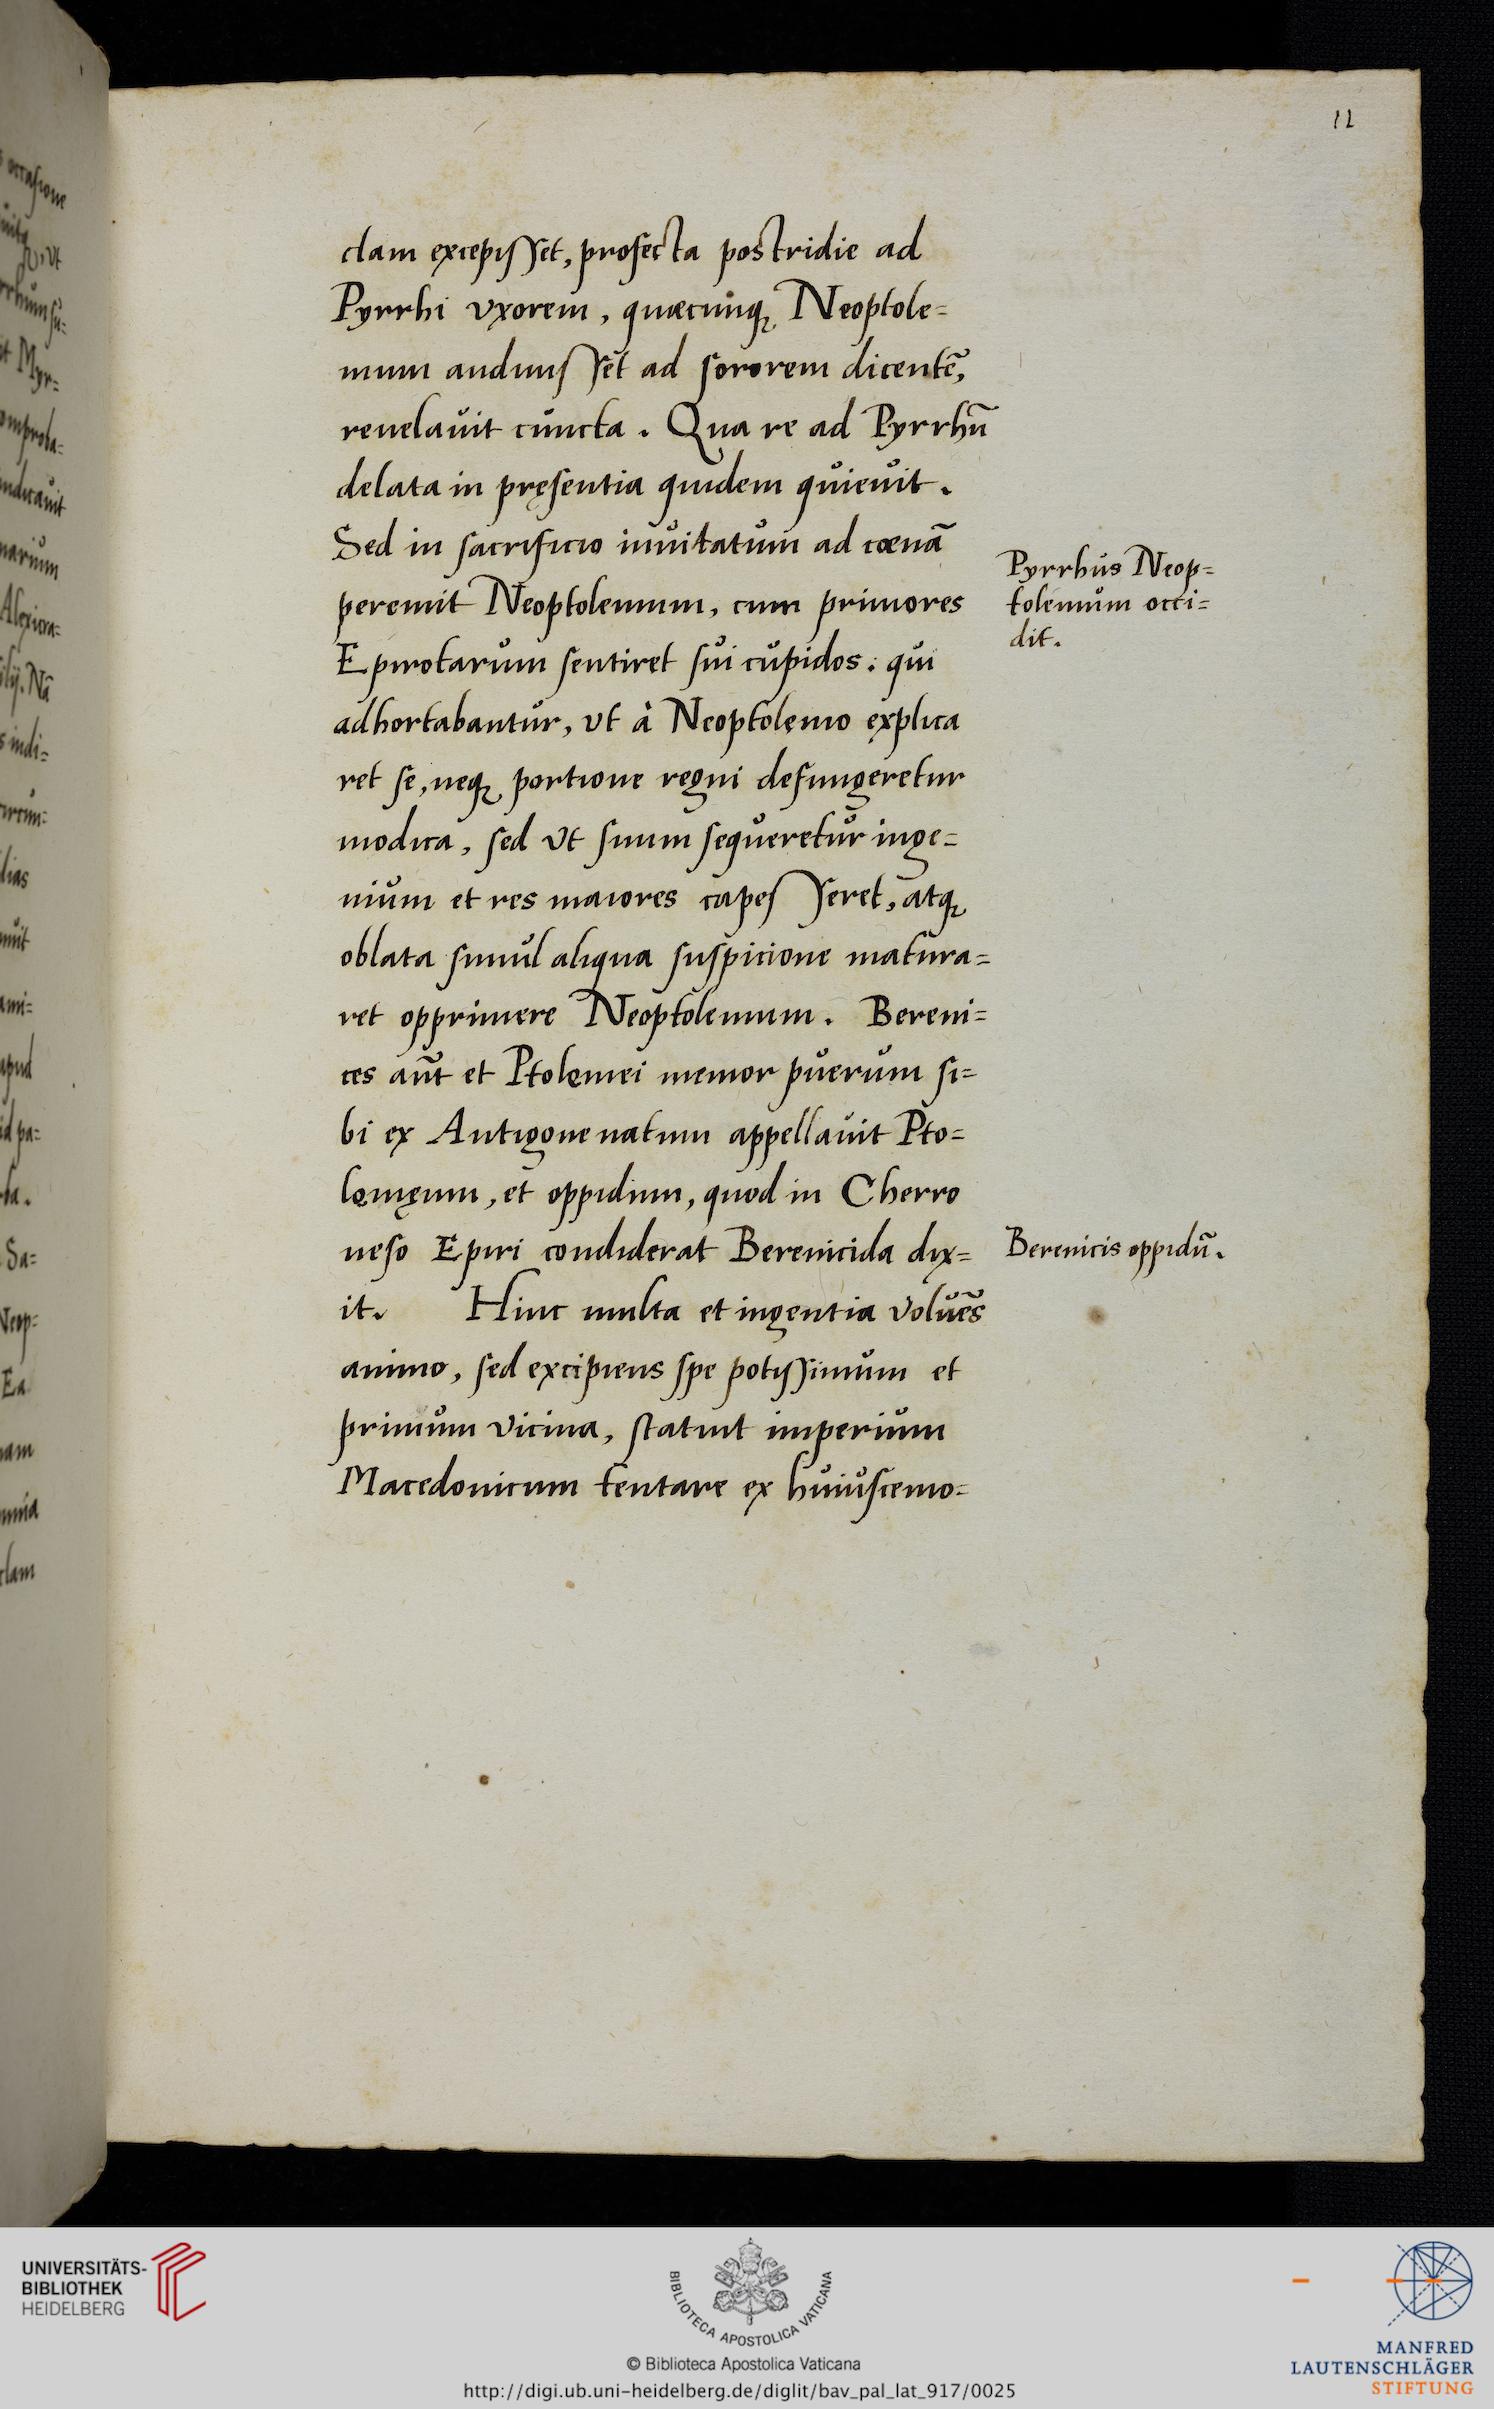 12
clam excepisset, profecta postridie ad
Pyrrhi vxorem, quæcunq, Neoptole=
mum audiuisset ad sororem dicentē,
reuelauit cuncta. Qua re ad Pyrrhū
delata in pręsentia quidem quieuit.
Sed in sacrificio inuitatum ad cœnā
peremit Neoptolemum, cum primores
Epirotarum sentiret sui cupidos: qui
adhortabantur, vt à Neoptolęmo explica
ret se, neq, portione regni defungeretur
modica, sed vt suum sequeretur inge=
nium et res maiores capesseret, atq,
oblata simul aliqua suspicione matura=
ret opprimere Neoptolemum. Bereni=
ces aūt et Ptolęmei memor puerum si=
bi ex Antigone natum appellauit Pto=
lęmęum, et oppidum, quod in Cherro
neso Epiri condiderat Berenicida dix=
it. Hinc multa et ingentia voluēs
animo, sed excipiens spe potissimum et
primum vicina, statuit imperium
Macedonicum tentare ex huiuscemo=
Pyrrhus Neop=
tolemum occi=
dit.
Berenicis oppidū.
UNIVERSITÄTS-
BIBLIOTHEK
HEIDELBERG
BIBLIOTECA APOSTOLICA VATICANA
© Biblioteca Apostolica Vaticana
http://digi.ub.uni-heidelberg.de/diglit/bav_pal_lat_917/0025
MANFRED
LAUTENSCHLÄGER
STIFTUNG